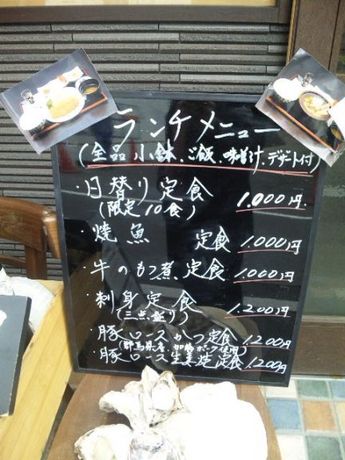 ランチメニュー
(全品 小鉢、ご飯、味噌汁、デザート付)
・日替り定食 1.000円
(限定10食)
・焼魚 定食 1.000円
・牛のもつ煮 定食 1.000円
・刺身定食 1.200円
(三点盛り)
・豚ロースかつ定食 1.200円
(群馬県産、加藤ポーク使用)
・豚ロース生姜焼定食 1.200円